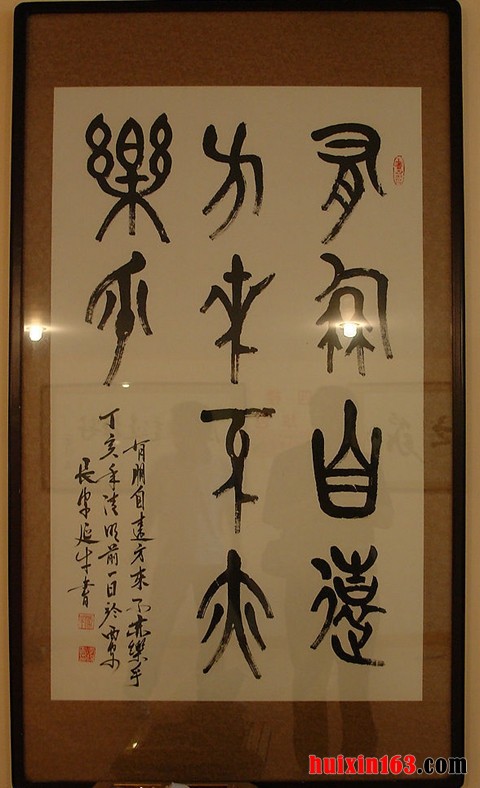 有朋自遠
方來不亦
樂乎
有朋自遠方來不亦樂乎
丁亥年清明前一日於
書
huixin163.com